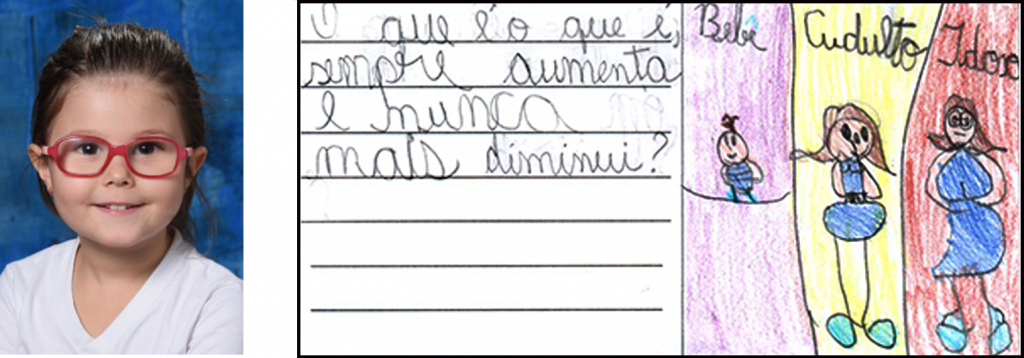 O que é o que é,
sempre aumenta
e nunca
mais diminui?
Bebê
Cudulto
Idoso